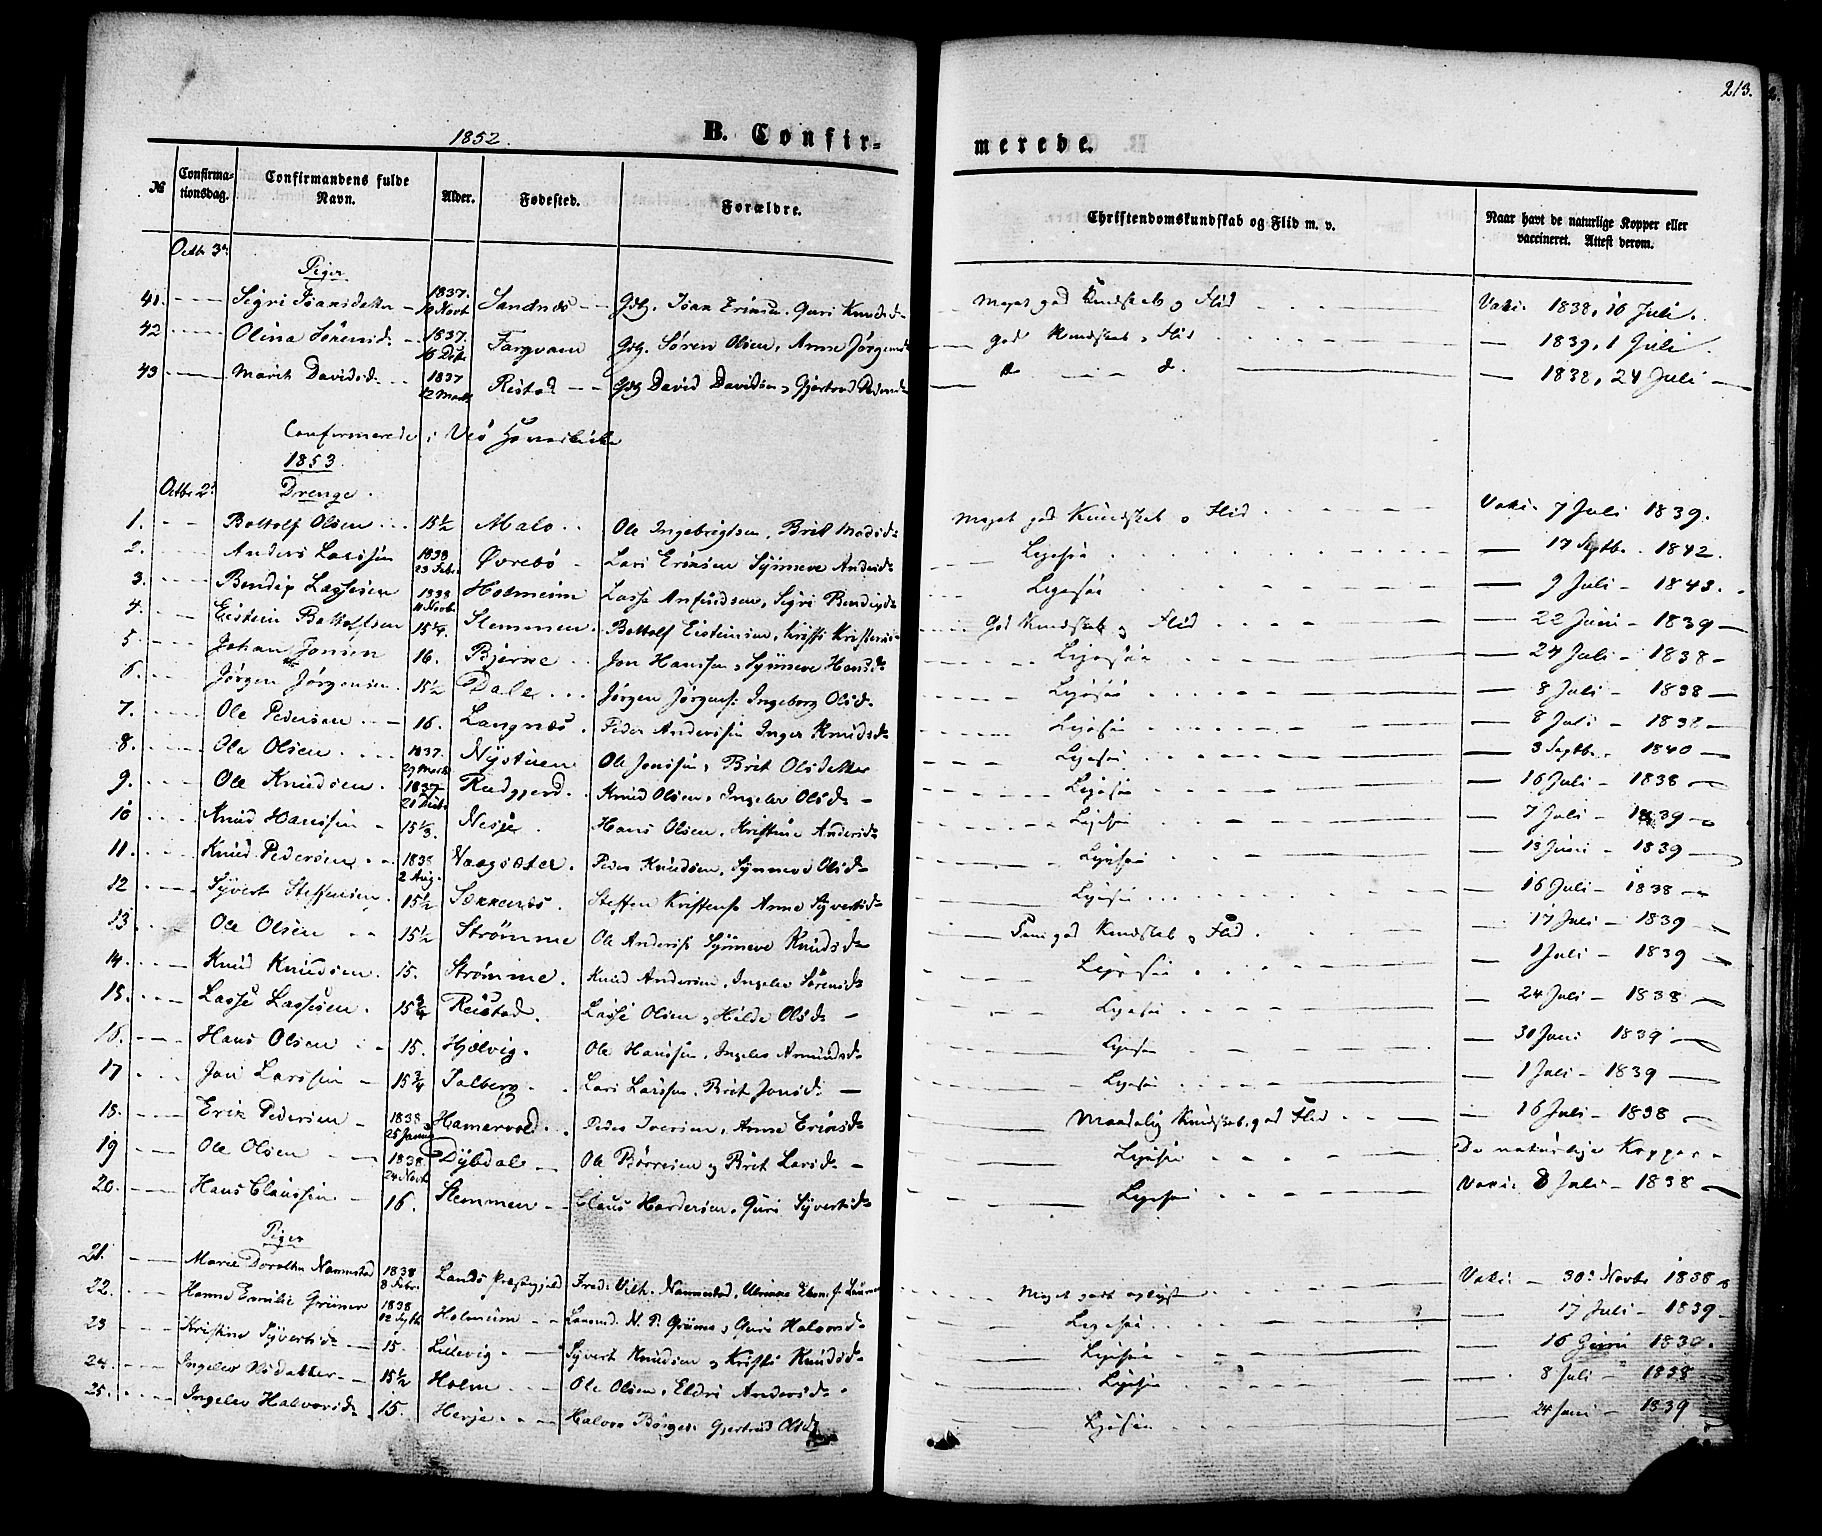 213.
1852.
B. Confir-
merede.
№ Confirma-tionsdag. Confirmandens fulde Navn. Alder. Fødested. Forældre. Christendomskundskab og Flid m. v. Naar havt de naturlige Kopper eller vaccineret. Attest derom.
Octb 3d
Piger
41. Sigri 1837. Novb Sandnæs Gdbr. Guri Knudsd. Meget god Kundskab og Flid Vaki. 1838, 10 Juli.
42 Olina Sørensd. 1837. Gdbr. Søren Olsen, Anne Jørgensd. god Kundskab, Flid 1839, 1 Juli.
43 Marit Davidsd. 1837 12 Marts Ristad Gdbr David Davidsen, Gjertrud 1838, 24 Juli
Confirmerede i Veö
1853.
Octbr 2d Drenge.
1. Bottolf Olsen 15½ Malo Ole Ingebrigtsen, Brit Madsd. Meget god Kundskab o Flid Vaki. 7 Juli 1839.
2. Anders Larssen 1838 23 Febr Øvrebö Lars Ericsen Synneve Andersd. Ligesaa 17 Septbr. 1842.
3. Bendix Lassesen 1838 Novbr Holmeim Lasse Amundsen, Sigri Bendixd. Ligesaa 9 Juli 1843.
4. Eistein Bottolfsen 15¼ Stemmen Bottolf Eisteinsen, God Kundskab og Flid 22 Juni 1839
5. Johan Jonsen 16. Bjerme Jon Hanssen, Synneve Hansd. Ligesaa 24 Juli 1838
6. Jørgen Jørgensen 15½ Dale Jørgen Jørgens. Ingeborg Olsd. Ligesaa 8 Juli 1838
7. Ole Pedersen 16. Langnæs Peder Anderssen Inger Knudsd. Ligesaa 8 Juli 1838
8. Ole Olsen 1837. 29 Marts Nystuen Ole Jonssen, Brit Olsdatter Ligesaa 3 Septbr. 1840
9. Ole Knudsen 1837 Rødgjerd Knud Olsen, Ingelev Olsd. Ligesaa 16 Juli 1838
10 Knud Hanssen 15⅓ Nesje Hans Olsen, Kristine Andersd. Ligesaa 7 Juli 1839
11. Knud Pedersen 1838 2 Aug. Vaagsæter. Peder Knudsen, Synneve Olsd. Ligesaa 13 Juni 1839
12 Syvert Steffensen. 15½ Sækkenæs. Steffen Kristens. Anne Syvertsd. Ligesaa 16 Juli 1838
13. Ole Olsen 15½ Strømme Ole Anderss. Synneve Knudsd. Temgod Kundskab o Flid. 17 Juli 1839
14. Knud Knudsen. 15. Strømme. Knud Andersen, Ingelev Sørensd. Ligesaa 1 Juli 1839
15. Lasse Lassesen. 15¾ Reistad. Lasse Olsen, Hilde Olsd. Ligesaa 24 Juli 1838
16. Hans Olsen 15. Hjelvig. Ole Hanssen, Ingelev Amundsd. Ligesaa 30 Juni 1839
17 Jon Larssen 15¾ Solberg Lars Larssen, Brit Jonsd. Ligesaa 1 Juli 1839
18. Erik Pedersen 1838 Hamervold. Peder Iversen, Anne Ericsd. Maadelig Kundskab, god Flid 16 Juli 1838
19 Ole Olsen 1838 24 Novb Dybdal Ole Børresen og Brit Larsd. Ligesaa De naturlige Kopper
20. Hans Claussen 16. Stemmen Claus Hendersen, Guri Syvertsd. Ligesaa Vaki. 8 Juli 1838
Piger
21. Marie Dorothea 1838 8 Febr. Lands Præstegjeld Meget godt oplyst Vaki. 30d Novbr 1838
22. Hanna Emilie Grüner 1838 12 Septb Holmeim N. P. Grüner, Guri Halvorsd. Ligesaa 17 Juli 1839
23 Kristine Syvertsd. 15. Lillevig Syvert Knudsen, Kristi Knudsd. Ligesaa 16 Juni
24. Ingelev Olsdatter 15½ Holm Ole Olsen, Eldri Andersd. Ligesaa 8 Juli 1838
25. Ingelev Halvorsd. 15. Herje Halvor Børges. Gjertrud Olsd. Ligesaa 24 Juni 1839